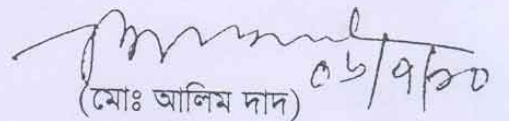 ০৬/৭/২০
(মোঃ আলিম দাদ)